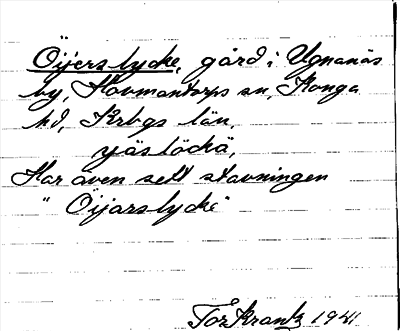 Öijerslycke, gård i Ugnanäs
by, Hovmantorps sn, Konga
hd, Krbgs län.
yäslöckä,
Har även sett stavningen
"Öijarslycke"
Tor Krantz 1941